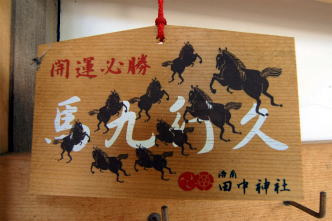 開運必勝
馬九行久
洛南
田中神社